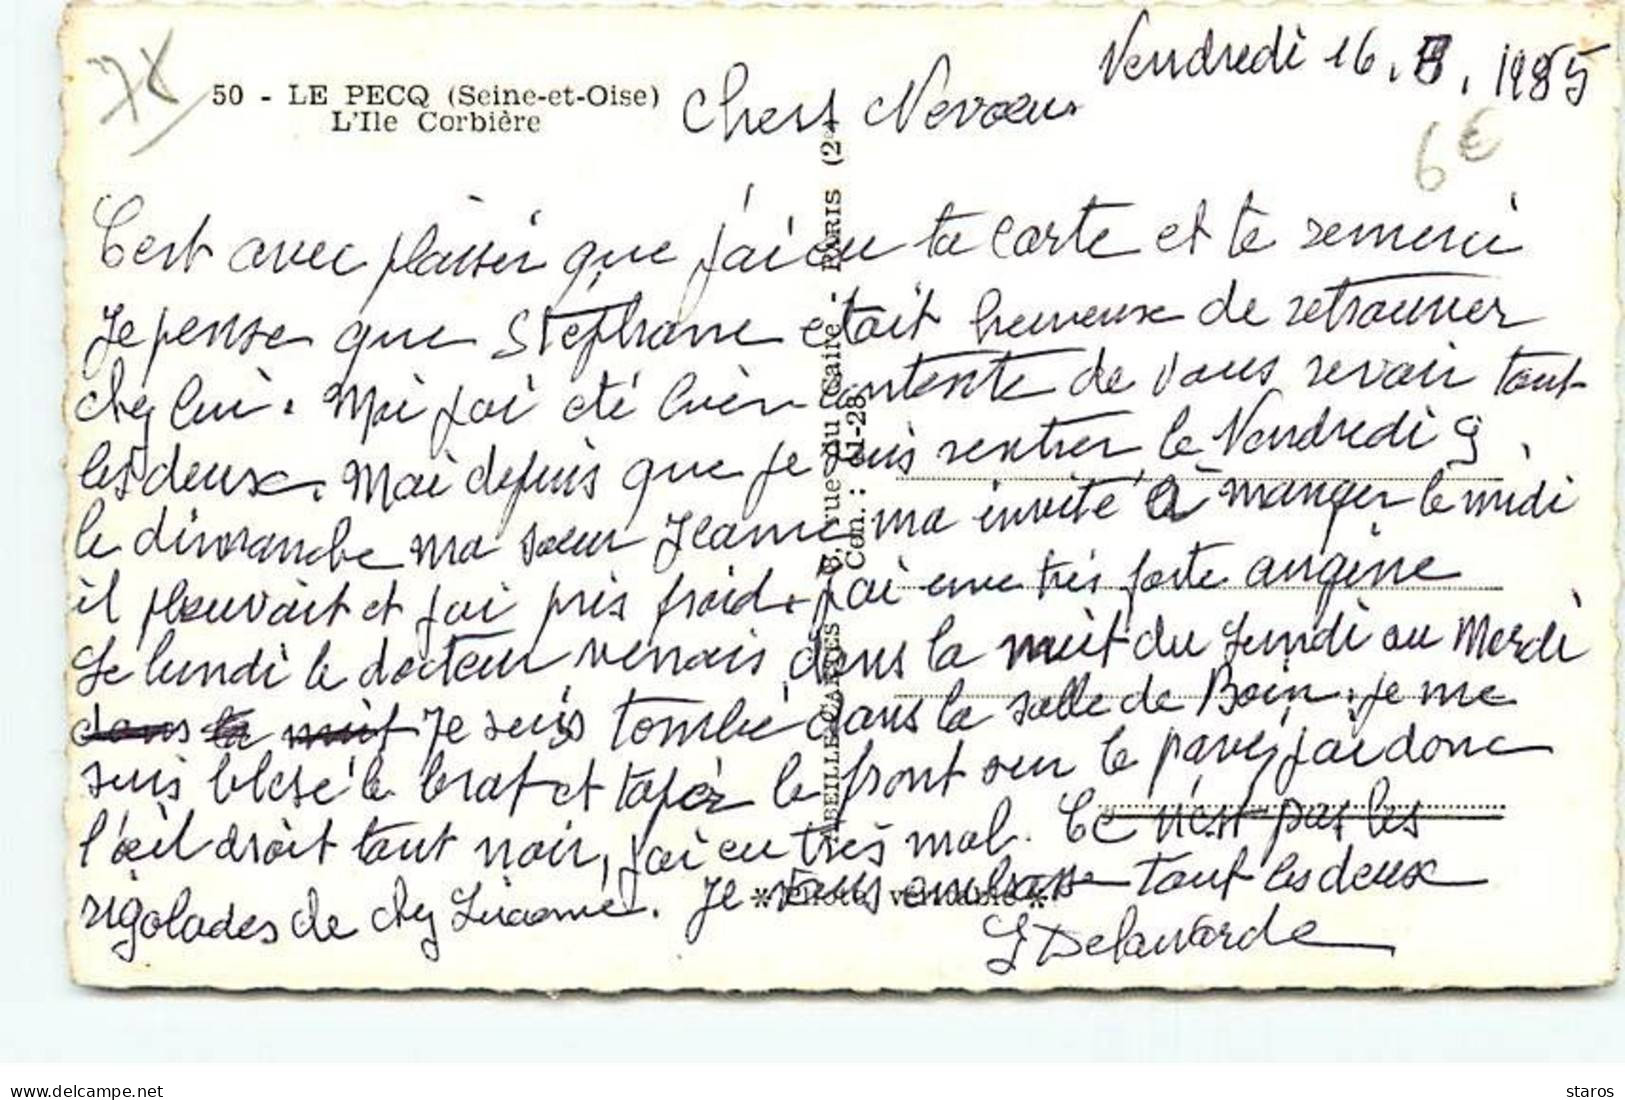 Vendredi 16. 8. 1985
78
50 - LE PECQ (Seine-et-Oise)
L'Ile Corbière
Chers Neveux
6€
C'est avec plaisir que j'ai eu ta carte et te remerci
Je pense que Stéphane etait heureuse de retrouver
chez lui. Moi j'ai été bien contente de vous revoir tout
les deux. Mai depuis que je suis rentrer le Vendredi 9.
le dimanche ma sœur Jeanne ma invité à manger le midi
il pleuvait et j'ai pris froid. j'ai eue très forte angine
Le lundi le docteur venais dans la nuit du Lundi au Mardi
dans la nuit Je suis tombé dans la salle de Bain. je me
suis blesé le bras et taper le front sur le pavé, j'ai donc
l'œil droit tout noir, j'ai eu très mal. Ce n'est pas les
rigolades de chez . Je vous embrasse tout les deux
L Delavarde
ABEILLE-CARTES 8, rue du Caire - PARIS (2e)
Cen.: 41-28
* Photo véritable *
www.delcampe.net
staros